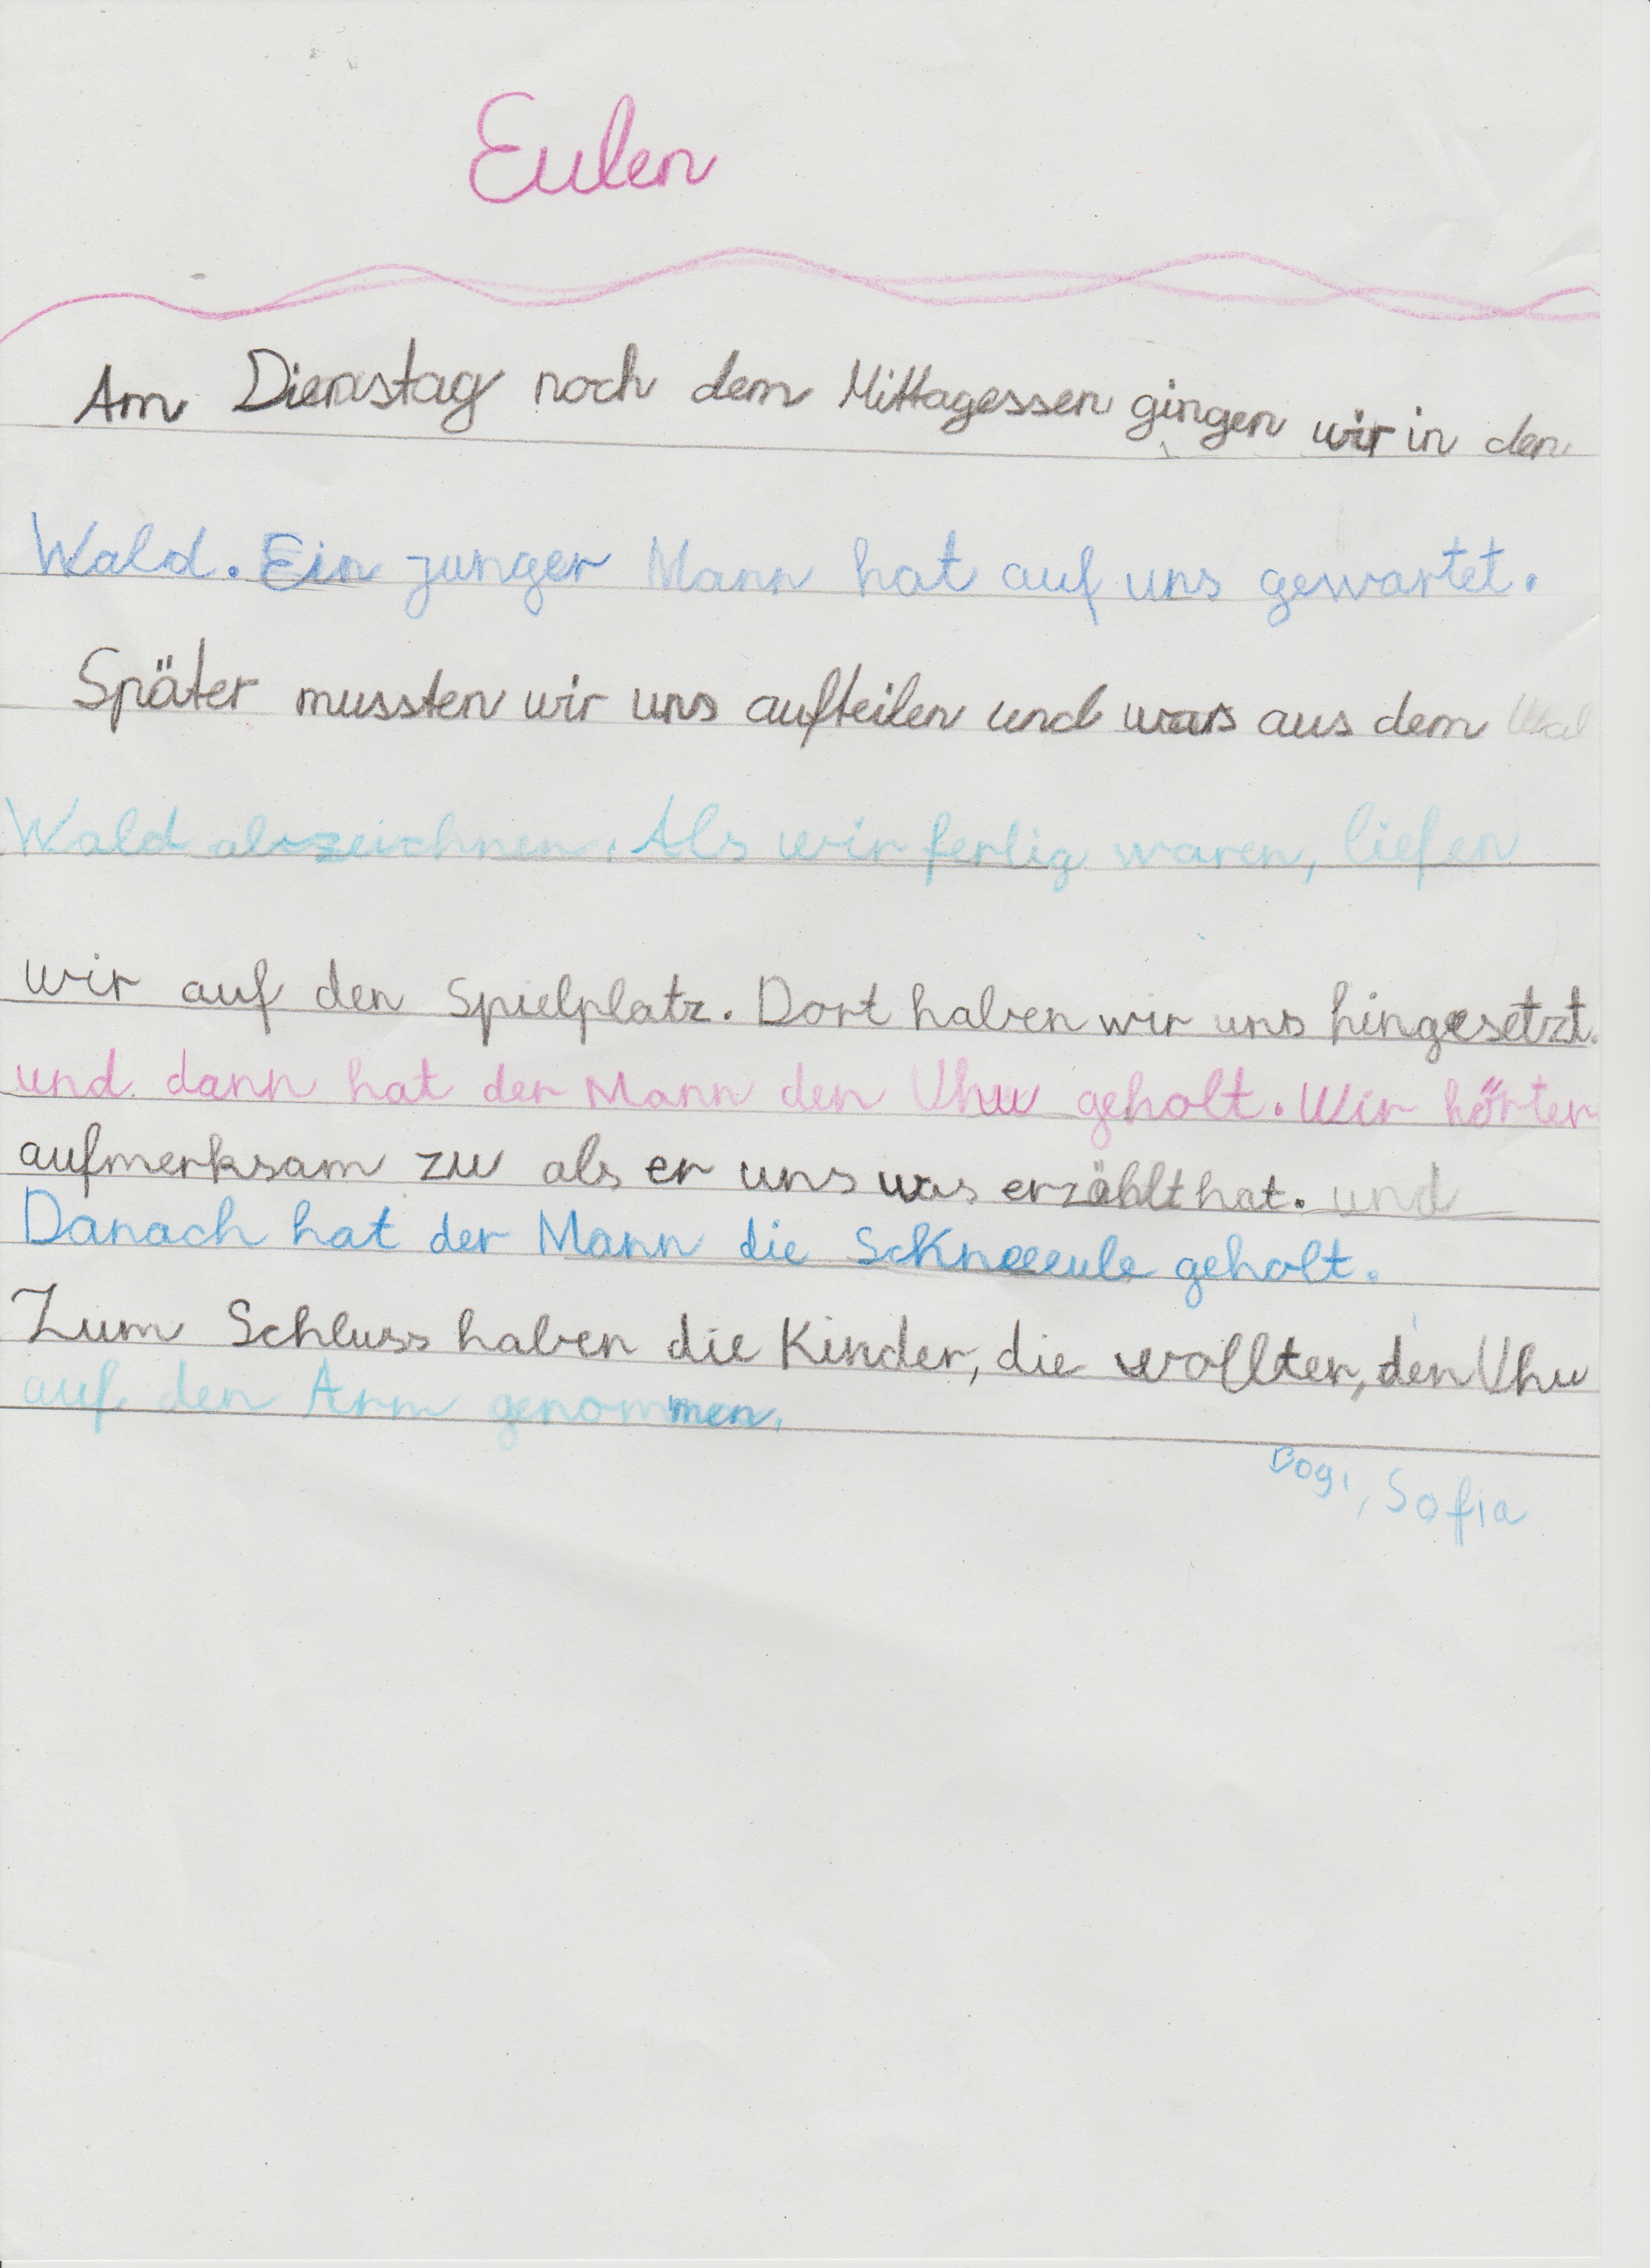 Eulen
Am Dienstag nach dem Mittagessen gingen wir in den
Wald. Ein junger Mann hat auf uns gewartet.
Später mussten wir uns aufteilen und was aus dem
Wald abzeichnen. Als wir fertig waren, liefen
wir auf den Spielplatz. Dort haben wir uns hingesetzt.
und dann hat der Mann den Uhu geholt. Wir hörten
aufmerksam zu als er uns was erzählt hat. und
Danach hat der Mann die geholt.
Zum Schluss haben die Kinder, die wollten, den Uhu
auf den Arm genommen.
Bogi, Sofia